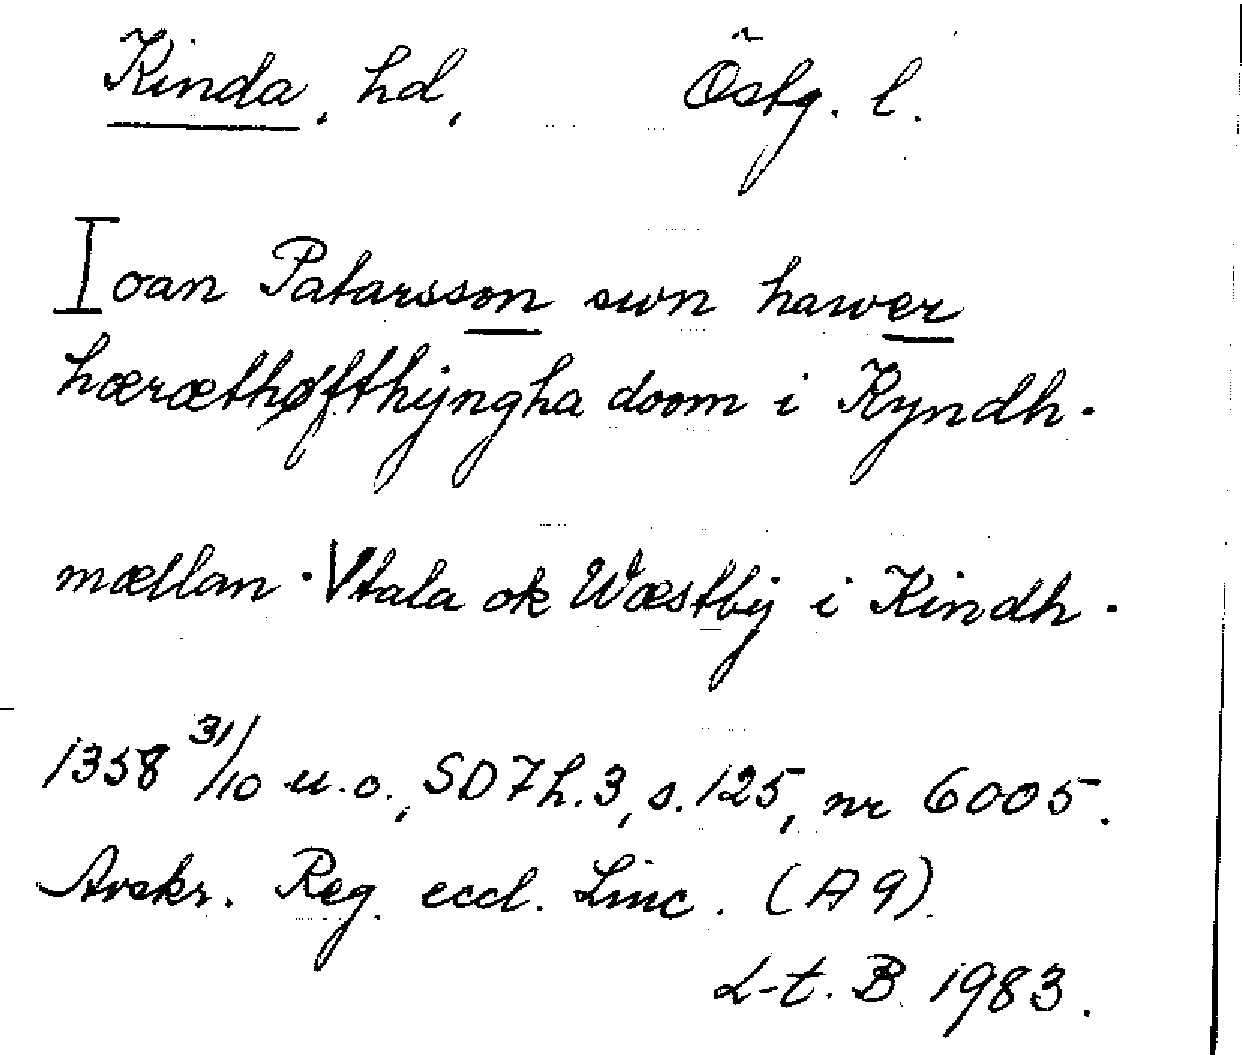 Kinda, hd, Östg. l.
Ioan Patarsson swn hawer
hæræthøfthijngha doom i Kyndh.
mællan. Vtala ok Wæstbij i Kindh.
1358 31/10 u.o., SD 7 h. 3, s. 125, nr 6005.
Avskr. Reg. eccl. Linc. (A 9).
L-t. B. 1983.